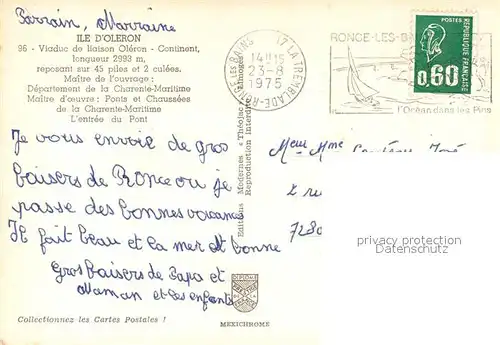 Parrain, Marraine
ILE D'OLERON
96 - Viaduc de liaison Oléron - Continent,
longueur 2993 m,
reposant sur 45 piles et 2 culées.
Maître de l'ouvrage :
Département de la Charente-Maritime
Maître d'œuvre : Ponts et Chaussées
de la Charente-Maritime
L'entrée du Pont
Je vous envoie de gros
baisers de Ronce ou je
passe des bonnes vacances
Il fait beau et la mer et bonne
Gros baisers de Papa et
Maman et les enfants
Collectionnez les Cartes Postales !
MEXICHROME
Editions Modernes « Théojac » Limoges
Reproduction Interdite
17 LA TREMBLADE-RONCE LES BAINS
14H15
23-8
1975
RONCE-LES-BA
l'Océan dans les Pins
POSTES
REPUBLIQUE FRANÇAISE
0,60
Mme
privacy protection
Datenschutz